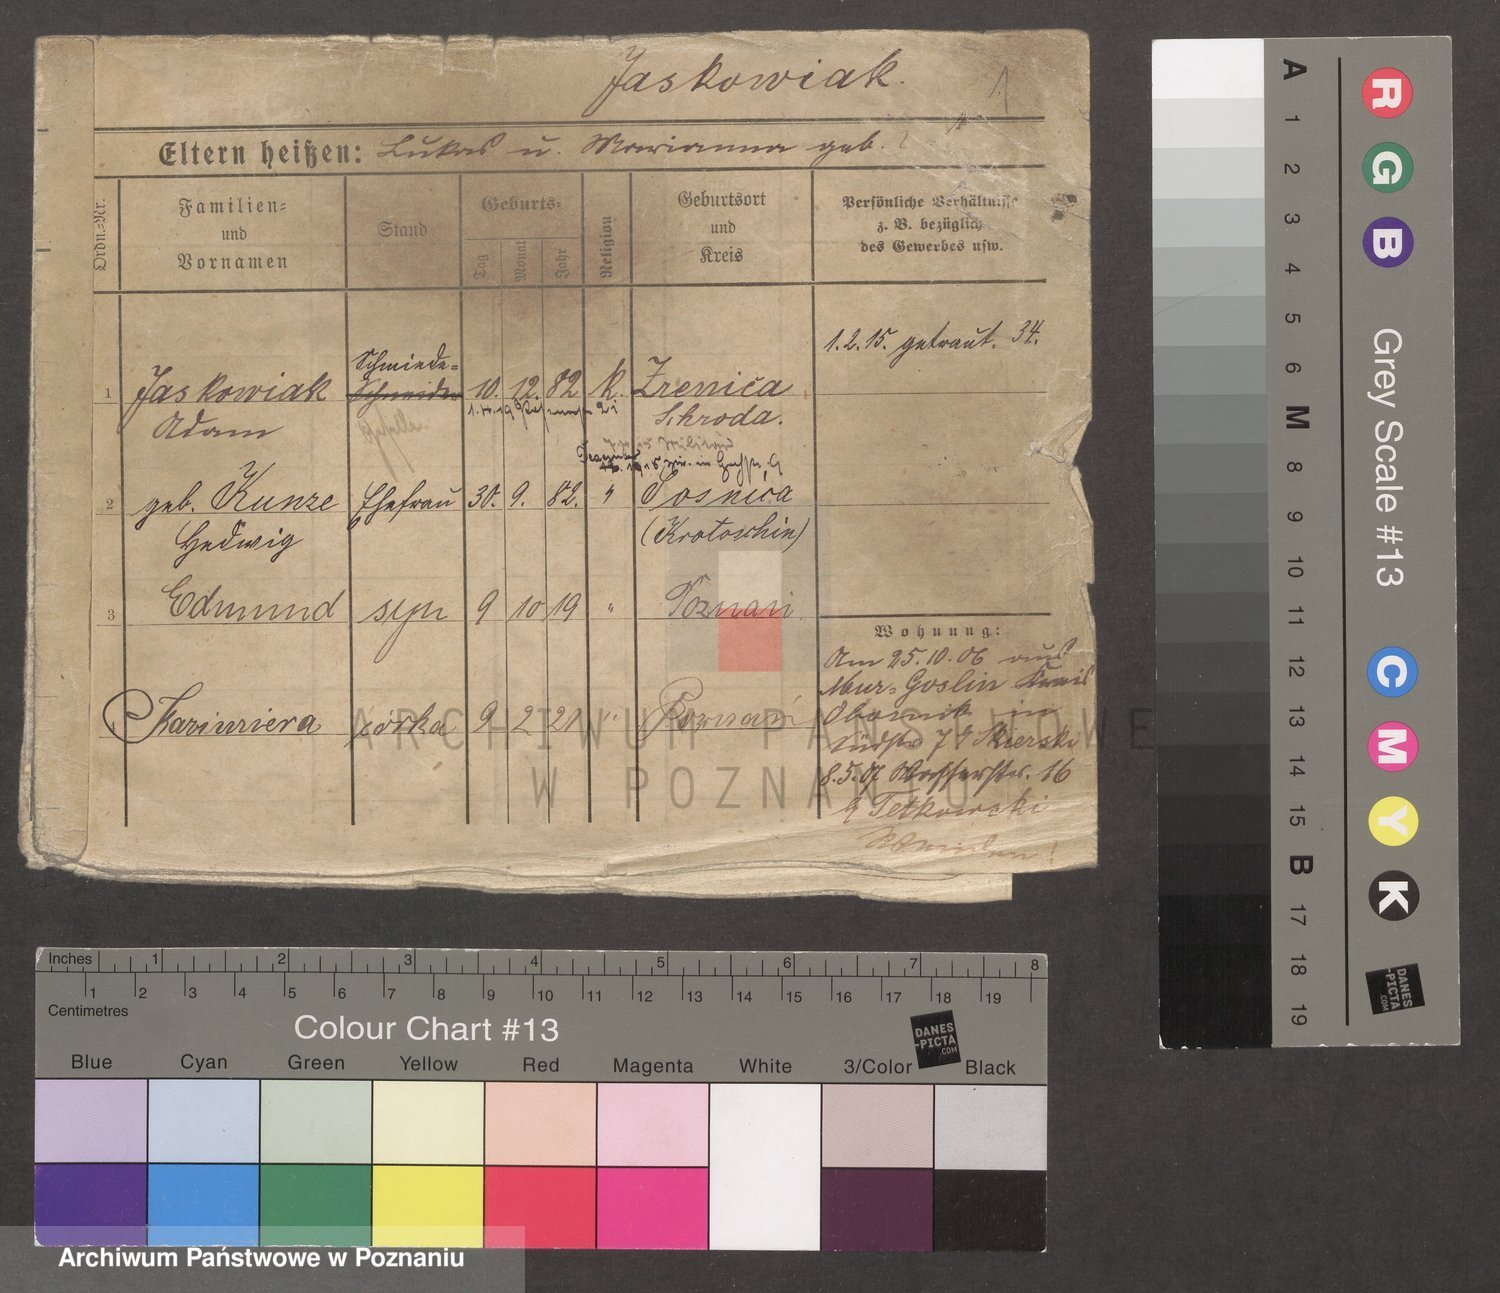 Jaskowiak.
1
Eltern heißen: Lukas u. Marianna geb.
Ordn.-Nr.
Familien-
und
Vornamen
Stand
Geburts-
Tag
Monat
Jahr
Religion
Geburtsort
und
Kreis
Persönliche Verhältnisse
z. B. bezüglich
des Gewerbes usw.
1.2.15. getraut. 34.
Schmiede-
1 Jaskowiak Schneider 10. 12. 82 k. Zrenica
Adam Geselle Schroda.
2 geb. Kunze Ehefrau 30. 9. 82. " Sosnica
Hedwig (Krotoschin)
3 Edmund syn 9 10 19 " Poznań
Kazimiera córka 9 2 21 " Poznań
Wohnung:
Am 25.10.06 aus
Mur-Goslin Kreis
Obornik in
Südstr 7 Skierski
8.5.07 Wasserstr. 16
Tetkowski
ARCHIWUM PAŃSTWOWE
W POZNANIU
A
1
2
3
4
5
6
M
8
9
10
11
12
13
14
15
B
17
18
19
R
G
B
Grey Scale #13
C
M
Y
K
DANES
-PICTA
.COM
Inches 1 2 3 4 5 6 7 8
1 2 3 4 5 6 7 8 9 10 11 12 13 14 15 16 17 18 19
Centimetres
Colour Chart #13
DANES
-PICTA
.COM
Blue Cyan Green Yellow Red Magenta White 3/Color Black
Archiwum Państwowe w Poznaniu